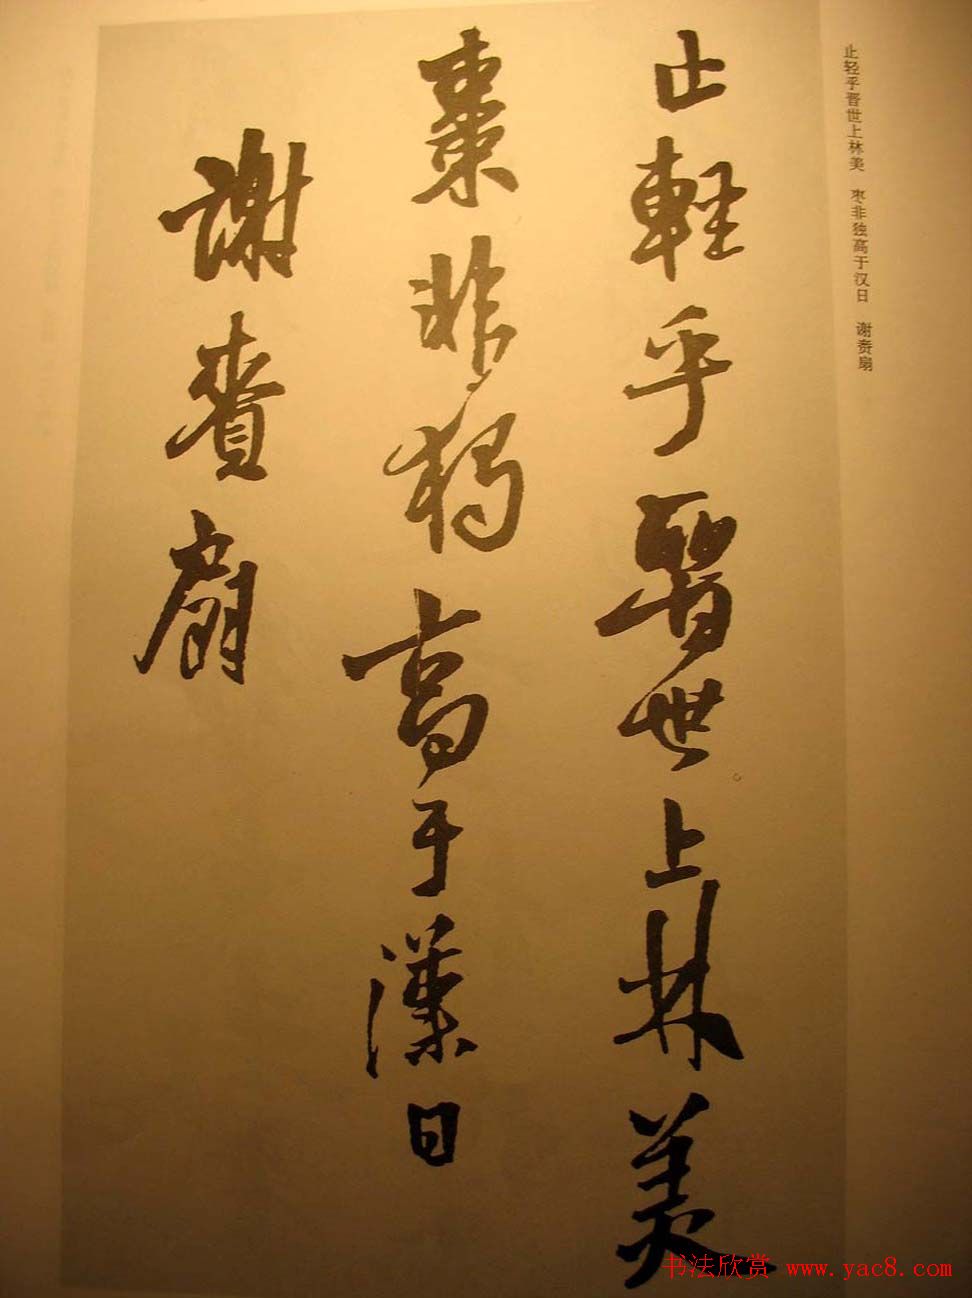 止轻乎晋世上林美 枣非独高于汉日 谢赉扇
止輕乎晉世上林美
棗非獨高于漢日
謝賚扇
书法欣赏 www.yac8.com